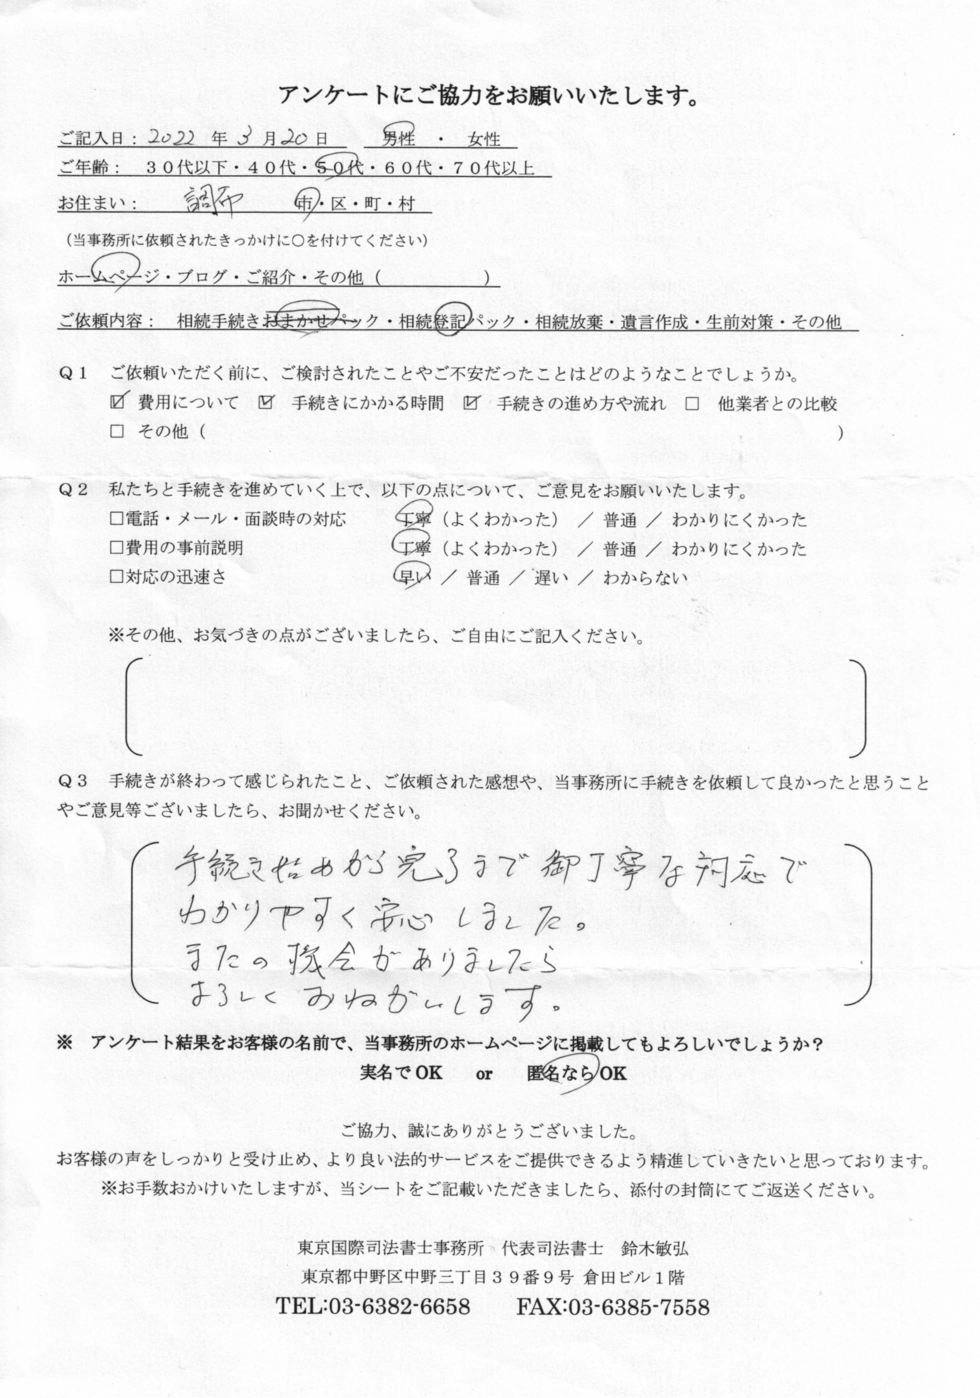 アンケートにご協力をお願いいたします。
ご記入日：2022 年 3 月 20 日　男性 ・ 女性
ご年齢： ３０代以下・４０代・５０代・６０代・７０代以上
お住まい： 調布 市・区・町・村
（当事務所に依頼されたきっかけに○を付けてください）
ホームページ・ブログ・ご紹介・その他（　　　　　　）
ご依頼内容： 相続手続きおまかせパック・相続登記パック・相続放棄・遺言作成・生前対策・その他
Ｑ１　ご依頼いただく前に、ご検討されたことやご不安だったことはどのようなことでしょうか。
☑ 費用について ☑ 手続きにかかる時間 ☑ 手続きの進め方や流れ □ 他業者との比較
□ その他（　　　　　　）
Ｑ２　私たちと手続きを進めていく上で、以下の点について、ご意見をお願いいたします。
□電話・メール・面談時の対応　丁寧（よくわかった） ／ 普通 ／ わかりにくかった
□費用の事前説明　丁寧（よくわかった） ／ 普通 ／ わかりにくかった
□対応の迅速さ　早い ／ 普通 ／ 遅い ／ わからない
※その他、お気づきの点がございましたら、ご自由にご記入ください。
Ｑ３　手続きが終わって感じられたこと、ご依頼された感想や、当事務所に手続きを依頼して良かったと思うこと
やご意見等ございましたら、お聞かせください。
手続き始めから完了まで御丁寧な対応で
わかりやすく安心しました。
またの機会がありましたら
よろしくおねがいします。
※　アンケート結果をお客様の名前で、当事務所のホームページに掲載してもよろしいでしょうか？
実名でOK　or　匿名ならOK
ご協力、誠にありがとうございました。
お客様の声をしっかりと受け止め、より良い法的サービスをご提供できるよう精進していきたいと思っております。
※お手数おかけいたしますが、当シートをご記載いただきましたら、添付の封筒にてご返送ください。
東京国際司法書士事務所　代表司法書士　鈴木敏弘
東京都中野区中野三丁目３９番９号 倉田ビル１階
TEL:03-6382-6658　FAX:03-6385-7558